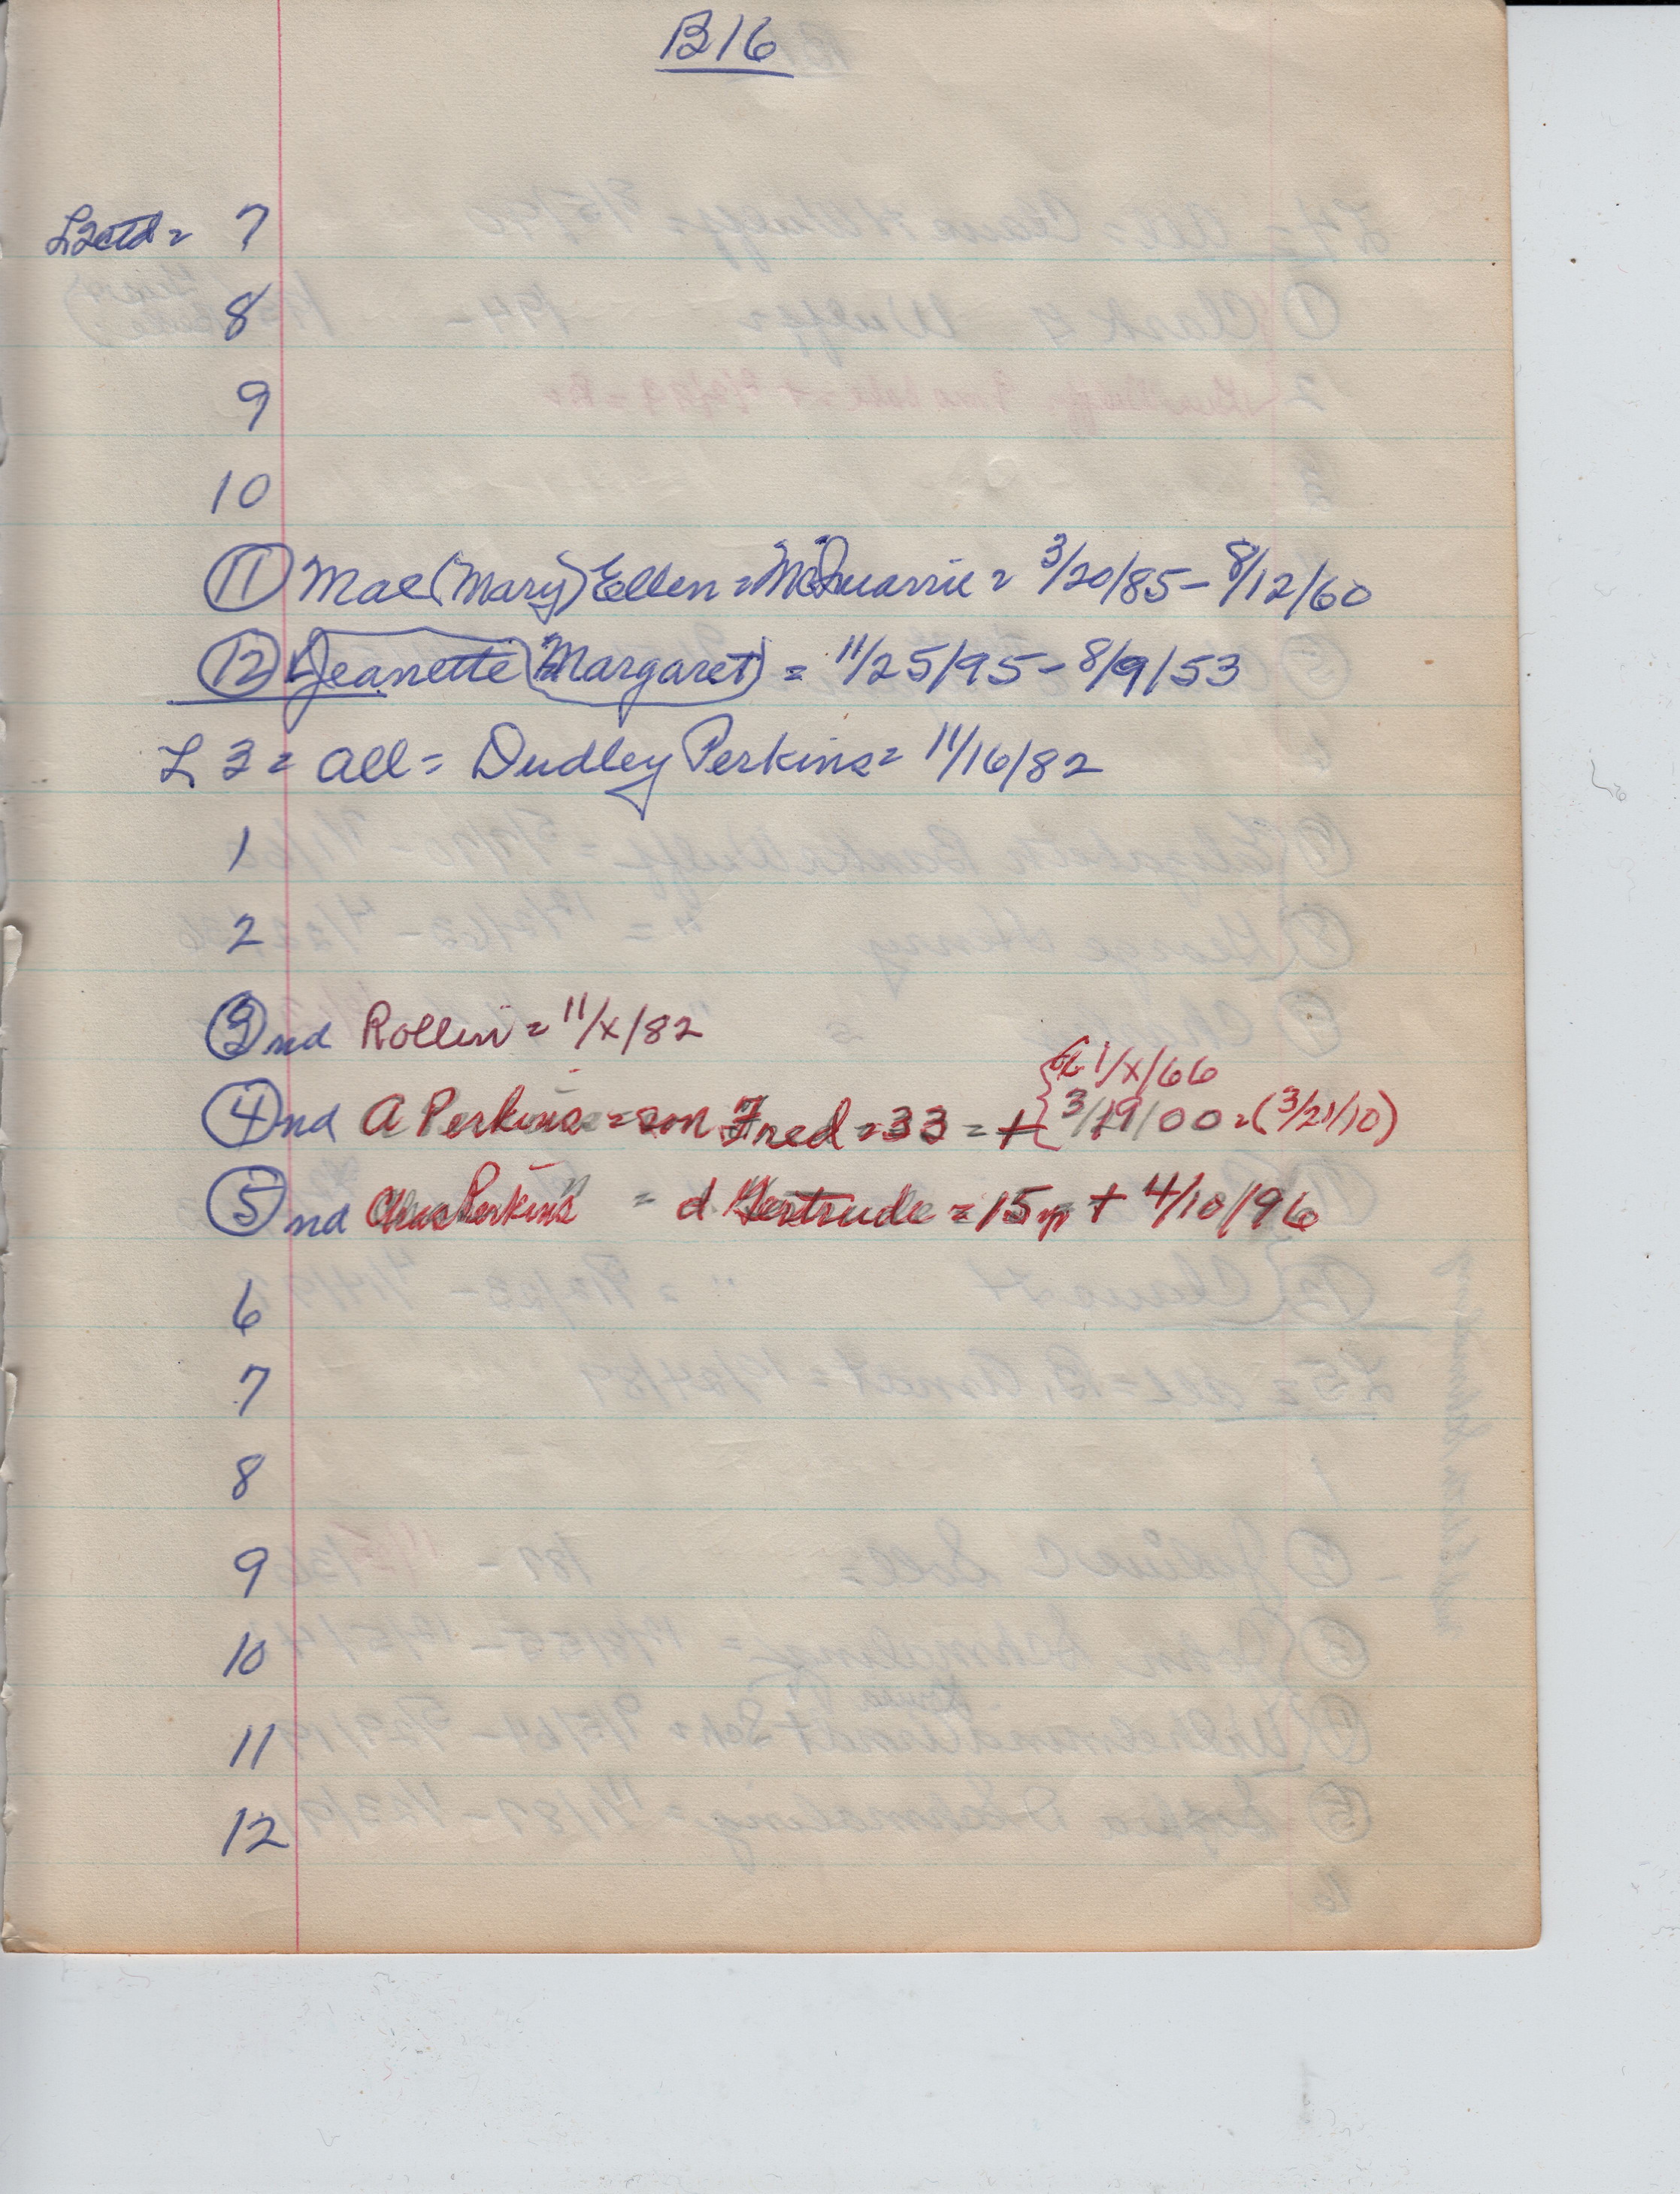 B16
L2ctd = 7
8
9
10
11 Mae (Mary) Ellen = McQuarrie = 3/20/85 - 8/12/60
12 Jeanette (Margaret) = 11/25/95 - 8/9/53
L 3 = all = Dudley Perkins = 11/16/82
1
2
3 nd Rollin = 11/x/82
1/x/66
4 nd A Perkins = son Fred = 33 = + 3/19/00 = (3/21/10)
5 nd Chas Perkins = d Gertrude = 15 m + 4/10/96
6
7
8
9
10
11
12